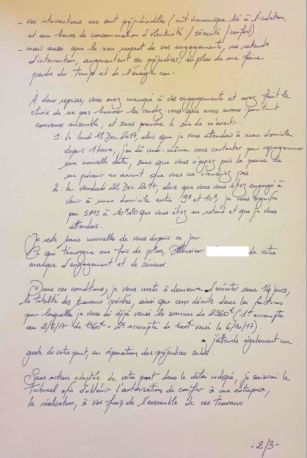 - vos interventions me sont préjudiciables (nuit économique liée à l'isolation,
et aux heures de consommation d'électricité / sécurité / confort)
- mais aussi que le non respect de vos engagements, vos retards
d'intervention, augmentent ces préjudices, en plus de me faire
perdre du temps et de l'énergie
À deux reprises, vous avez manqué à vos engagements et avez fait le
choix de ne pas honorer les rendez-vous que nous avons pourtant
convenu ensemble, et sans prendre le soin de m'avertir :
1. le lundi 18 Dec 2017, alors que je vous attendais à mon domicile
depuis 1 heure, j'ai dû moi-même vous contacter pour reprogrammer
une nouvelle date, sans que vous n'ayez pris la peine de
me prévenir en amont que vous ne viendriez pas.
2. le vendredi Dec 2017, alors que vous vous étiez engagé à
venir à mon domicile entre 9h et 10h, je vous
par SMS à que vous étiez en retard et que je vous
attendais.
Je reste sans nouvelle de vous depuis ce jour.
Ce qui témoigne une fois de plus, Monsieur de votre
manque d'engagement et de sérieux.
Dans ces conditions, je vous mets en demeure d'exécuter sous 14 jours,
la totalité des travaux précités, ainsi que ceux décrits dans les factures
par lesquelles je vous ai déjà versé les sommes de (1er acompte
au 2/8/17 de 2e acompte de versé le 6/10/17)
J'attends également un
geste de votre part, en réparation des préjudices subis.
Sans action adaptée de votre part dans le délai indiqué, je saisirai le
Tribunal afin d'obtenir l'autorisation de confier à une entreprise,
la réalisation, à vos frais de l'ensemble de ces travaux
-2/3-